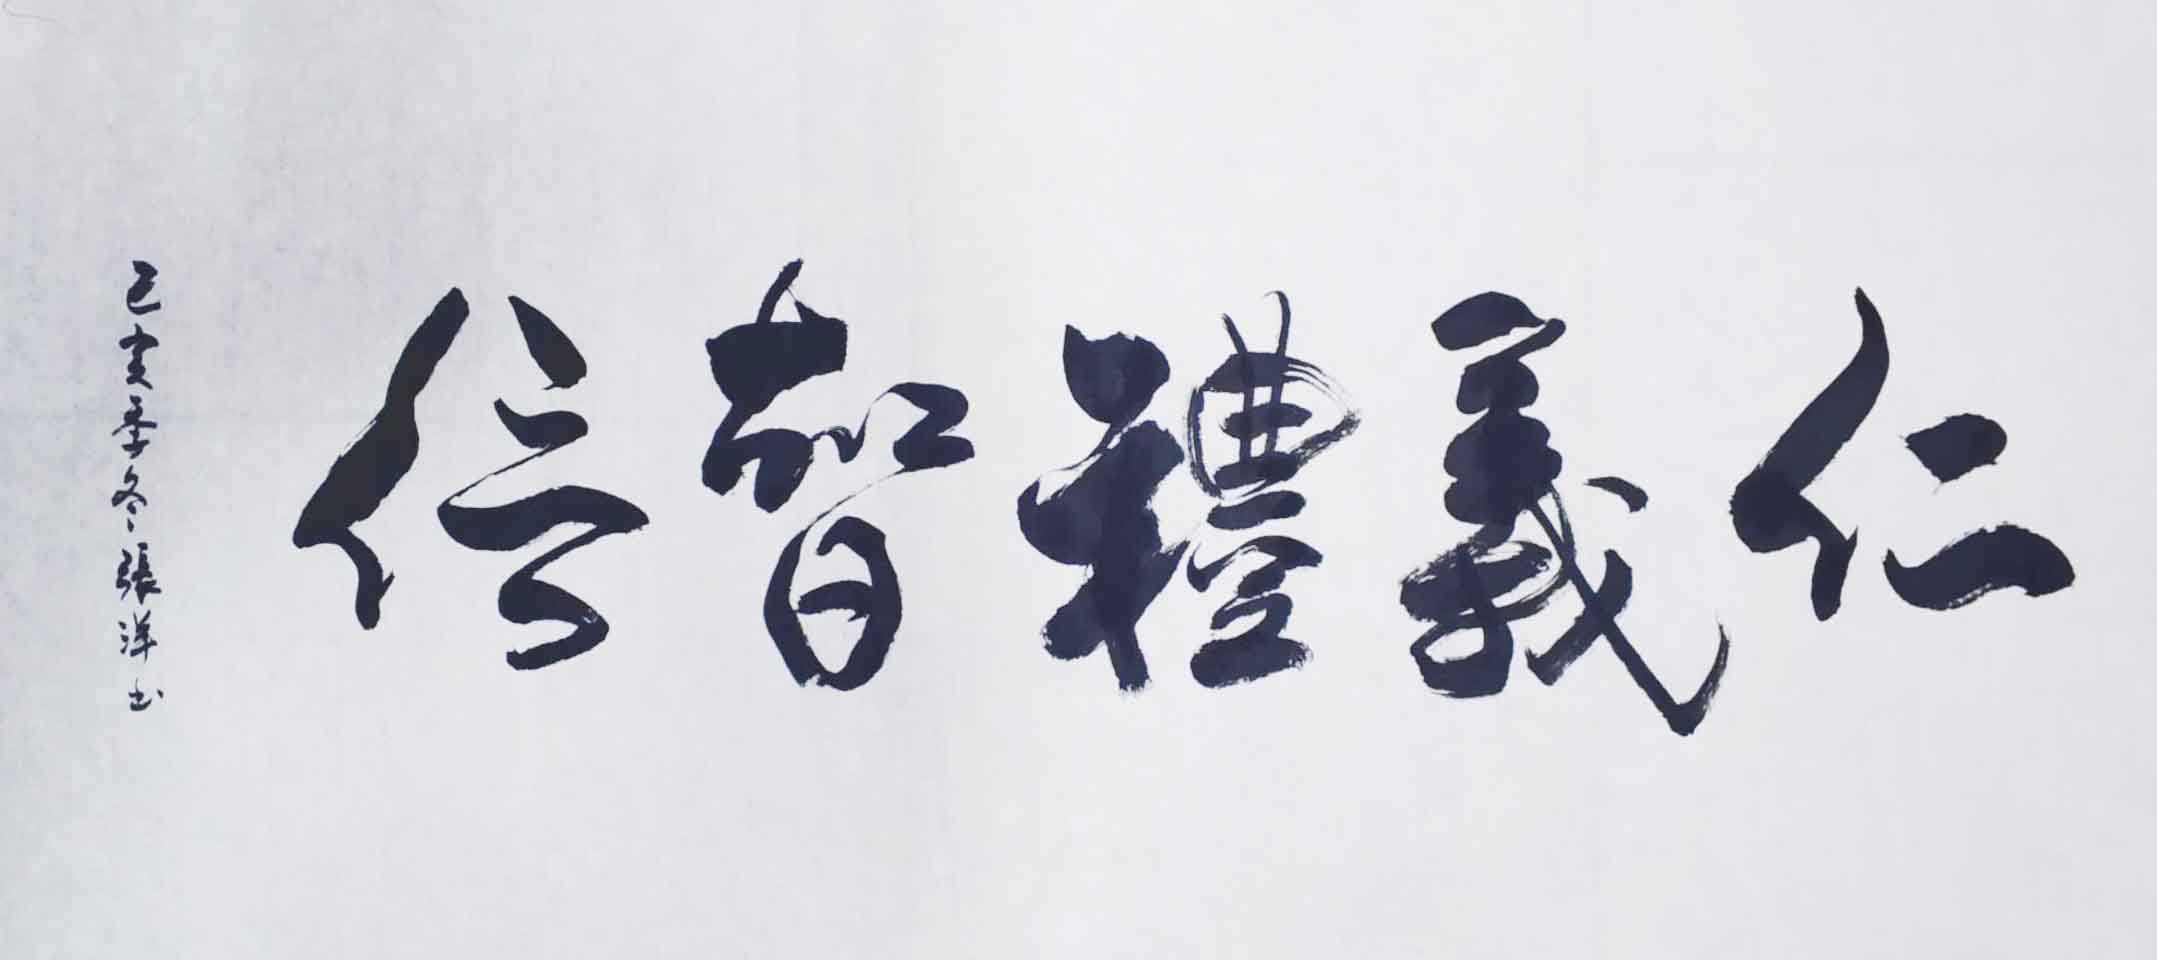 仁義禮智信
己亥季冬張洋書